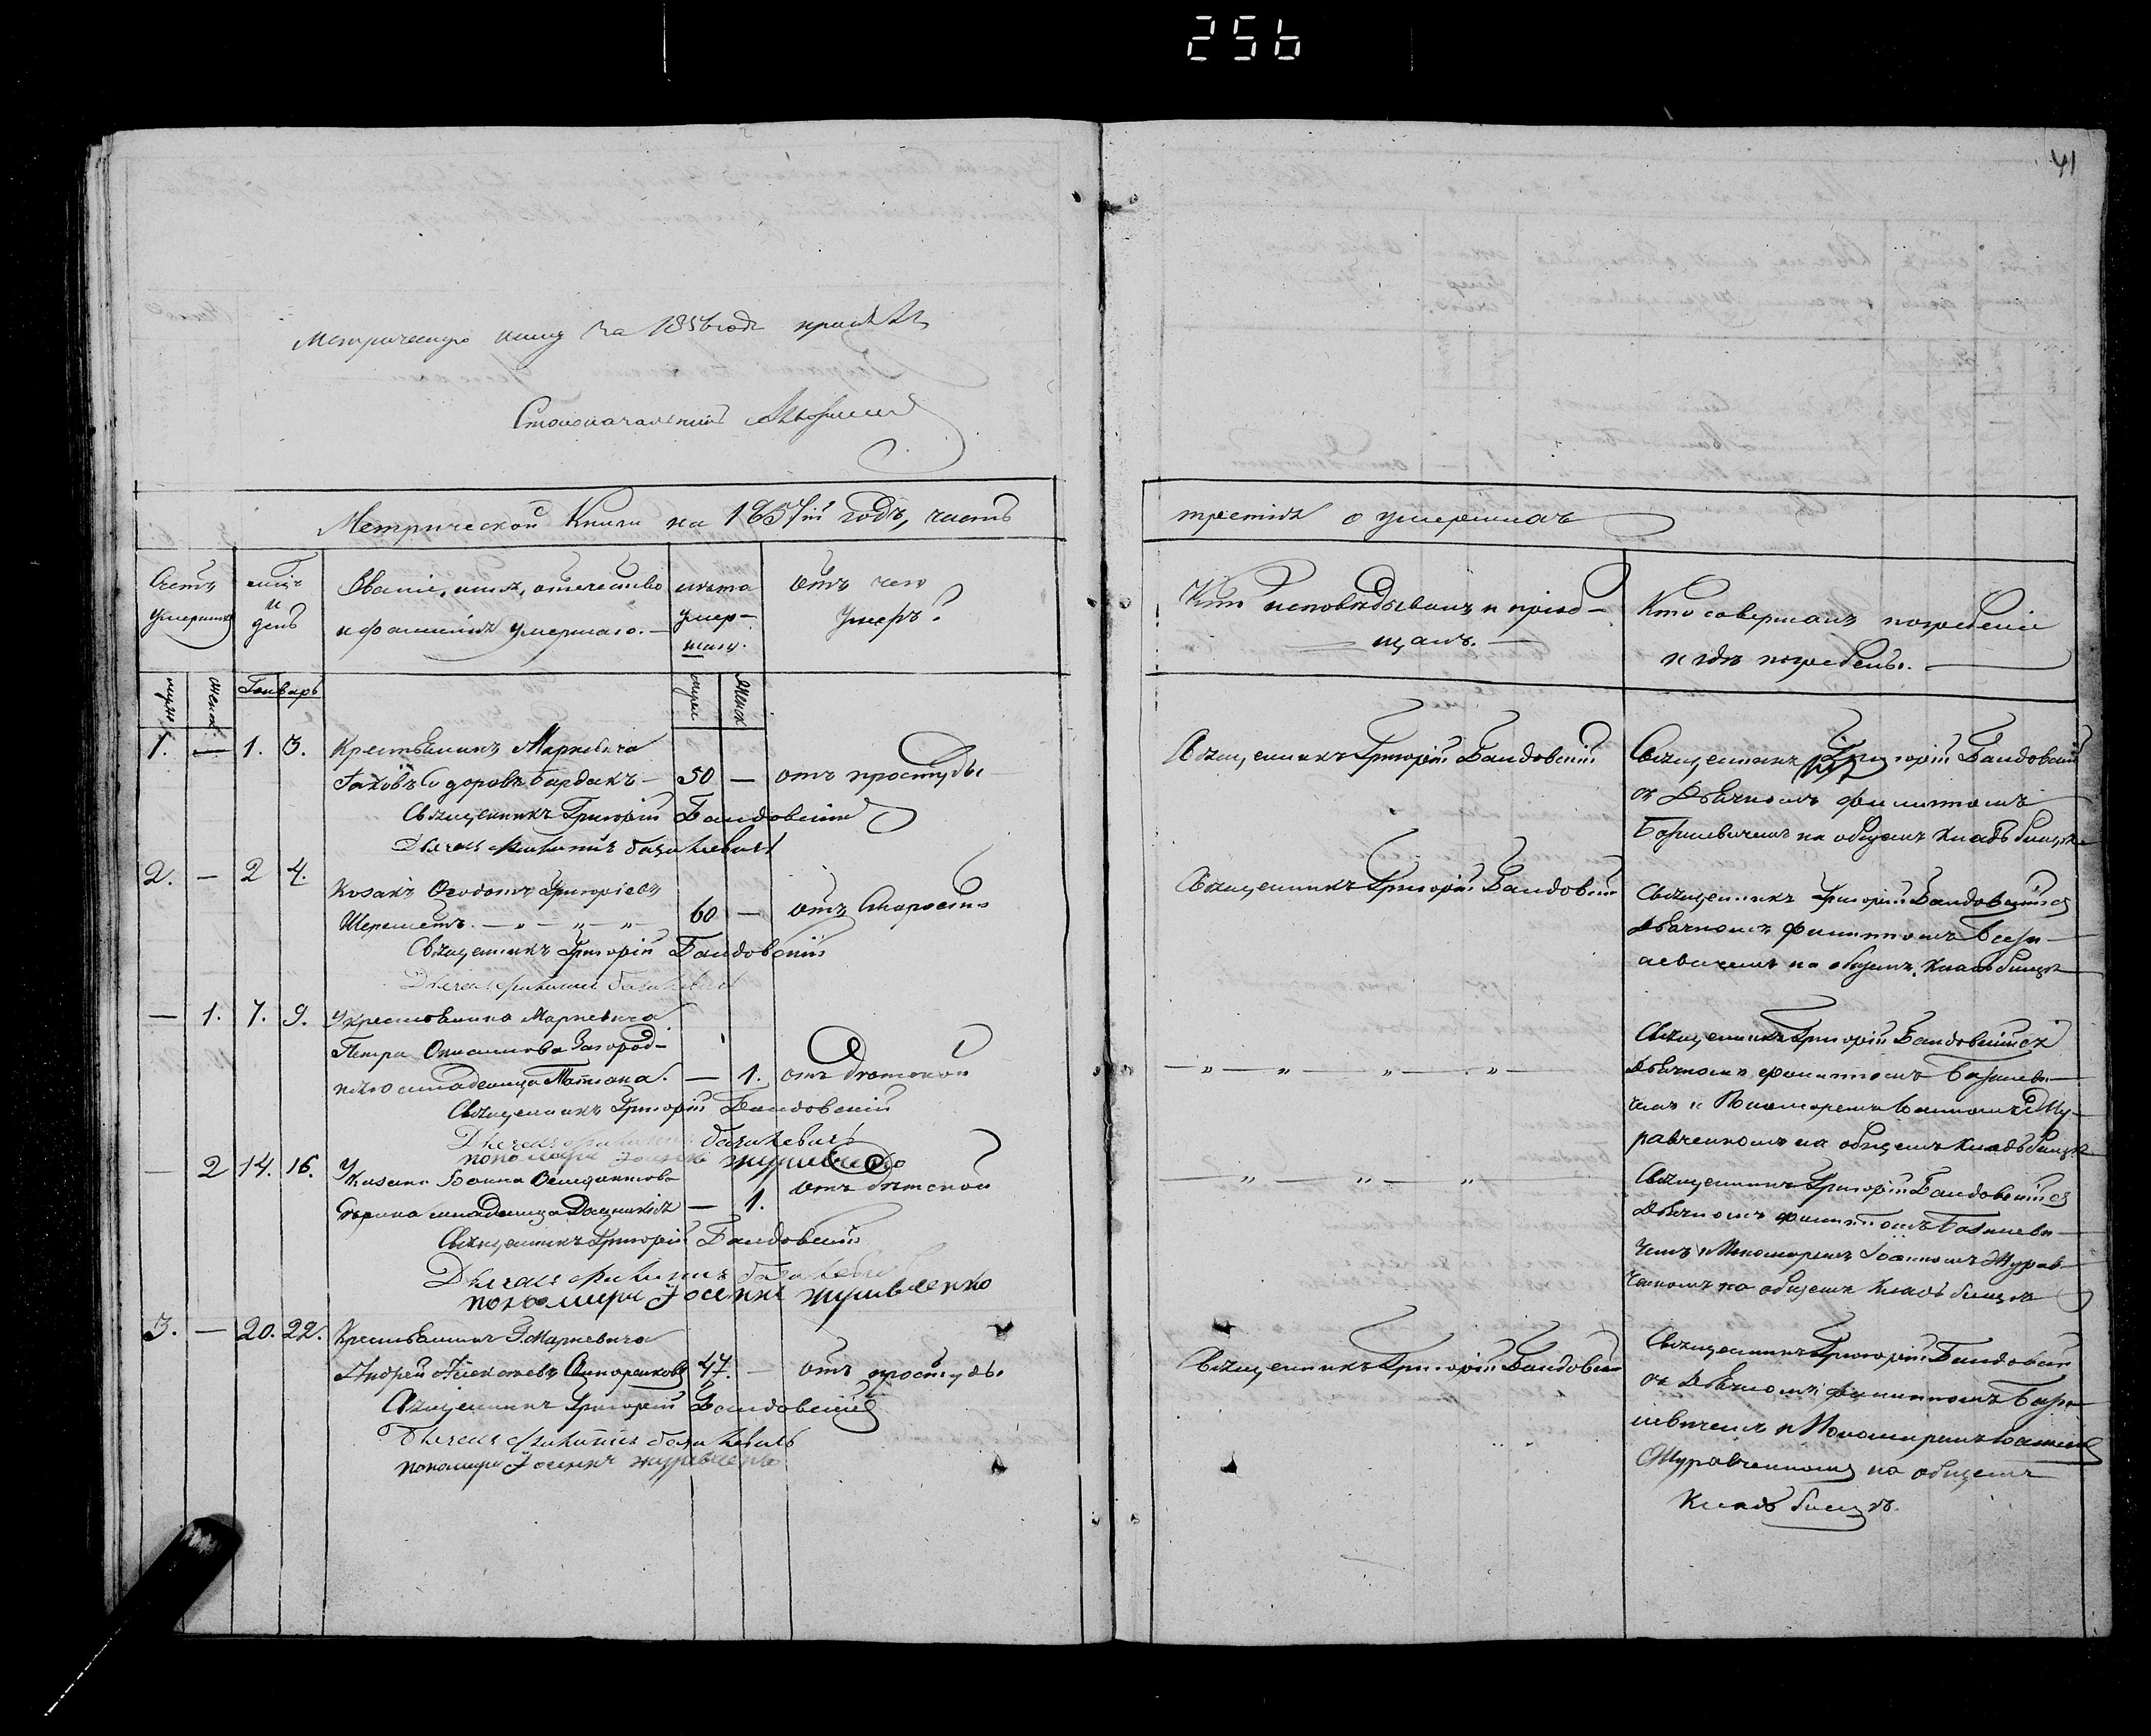 256
41
Метрическую книгу за 1856 годъ принялъ
Столоначальникъ
Метрической Книги на 1857й годъ, часть
третія о умершихъ
Счетъ умершихъ
мцъ и день
Званіе, имя, отечество
и фамилія умершаго.
лета умер-
шаго.
Отъ чего
умеръ?
Кто исповѣдывалъ и пріоб-
щалъ.
Кто совершалъ погребеніе
и гдѣ погребены.
мужес
женск.
Генварь
мужес
женск
1. — 1. 3. Крестьянинъ Маркевича
Іаковъ Сидоровъ Бардакъ — 50 — отъ простуды
Священникъ Григорій Бандовскій
Дьячекъ Филиппъ Базилевичъ
Священникъ Григорій Бандовскій
Священникъ Григорій Бандовскій
съ Дьячкомъ Филиппомъ
Базилевичемъ на общемъ кладбищѣ
2. — 2 4.
Козакъ Ѳеодотъ Григоріевъ
Шереметъ. — „ — „ — „ — 60 — отъ старости
Священникъ Григорій Бандовскій
Дьячекъ Филиппъ Базилевичъ
Священникъ Григорій Бандовскій
Священникъ Григорій Бандовскій съ
Дьячкомъ Филиппомъ Бази-
левичемъ на общемъ кладбищѣ
— 1. 7. 9. У крестьянина Маркевича
Петра Загород-
младеница Татіана. — 1. отъ
Священникъ Григорій Бандовскій
Дьячекъ Филиппъ Базилевичъ
пономарь Іоаннъ Журавченко
— „ — „ — „ — „ —
Священникъ Григорій Бандовскій съ
Дьячкомъ Филиппомъ Базилеви-
чемъ и Пономаремъ Іоанномъ Жу-
равченкомъ на общемъ кладбищѣ
— 2 14. 16. У
Козака Іоанна
младеница — 1. отъ
Священникъ Григорій Бандовскій
Дьячекъ Филиппъ Базилевичъ
пономарь Іоаннъ Журавченко
— „ — „ — „ —
Священникъ Григорій Бандовскій съ
Дьячкомъ Филиппомъ Базилеви-
чемъ и Пономаремъ Іоанномъ Журав-
ченкомъ на общемъ кладбищѣ
3. — 20. 22. Крестьянинъ Маркевича
Андрей 47. — отъ простуды
Священникъ Григорій Бандовскій
Дьячекъ Филиппъ Базилевичъ
пономарь Іоаннъ Журавченко
Священникъ Григорій Бандовскій
Священникъ Григорій Бандовскій
съ Дьячкомъ Филиппомъ Бази-
левичемъ и Пономаремъ Іоанномъ
Журавченкомъ на общемъ
кладбищѣ.